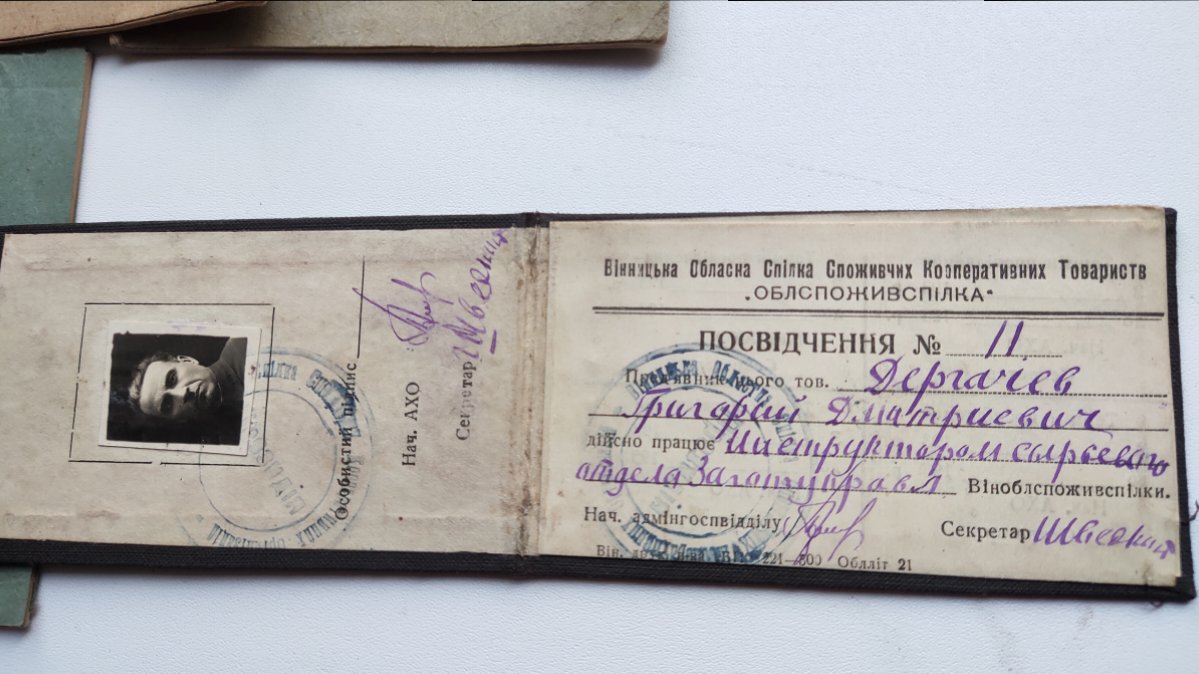 Особистий підпис
Нач. АХО
Секретар
Вінницька Обласна Спілка Споживчих Кооперативних Товариств
„ОБЛСПОЖИВСПІЛКА“
ПОСВІДЧЕННЯ № 11
Пред'явник цього тов. Дергачев
Григорий Дмитриевич
дійсно працює Инструктором сырьевого
отдела Заготуправл Віноблспоживспілки.
Нач. адмінгоспвідділу
Секретар
221—300 Облліт 21